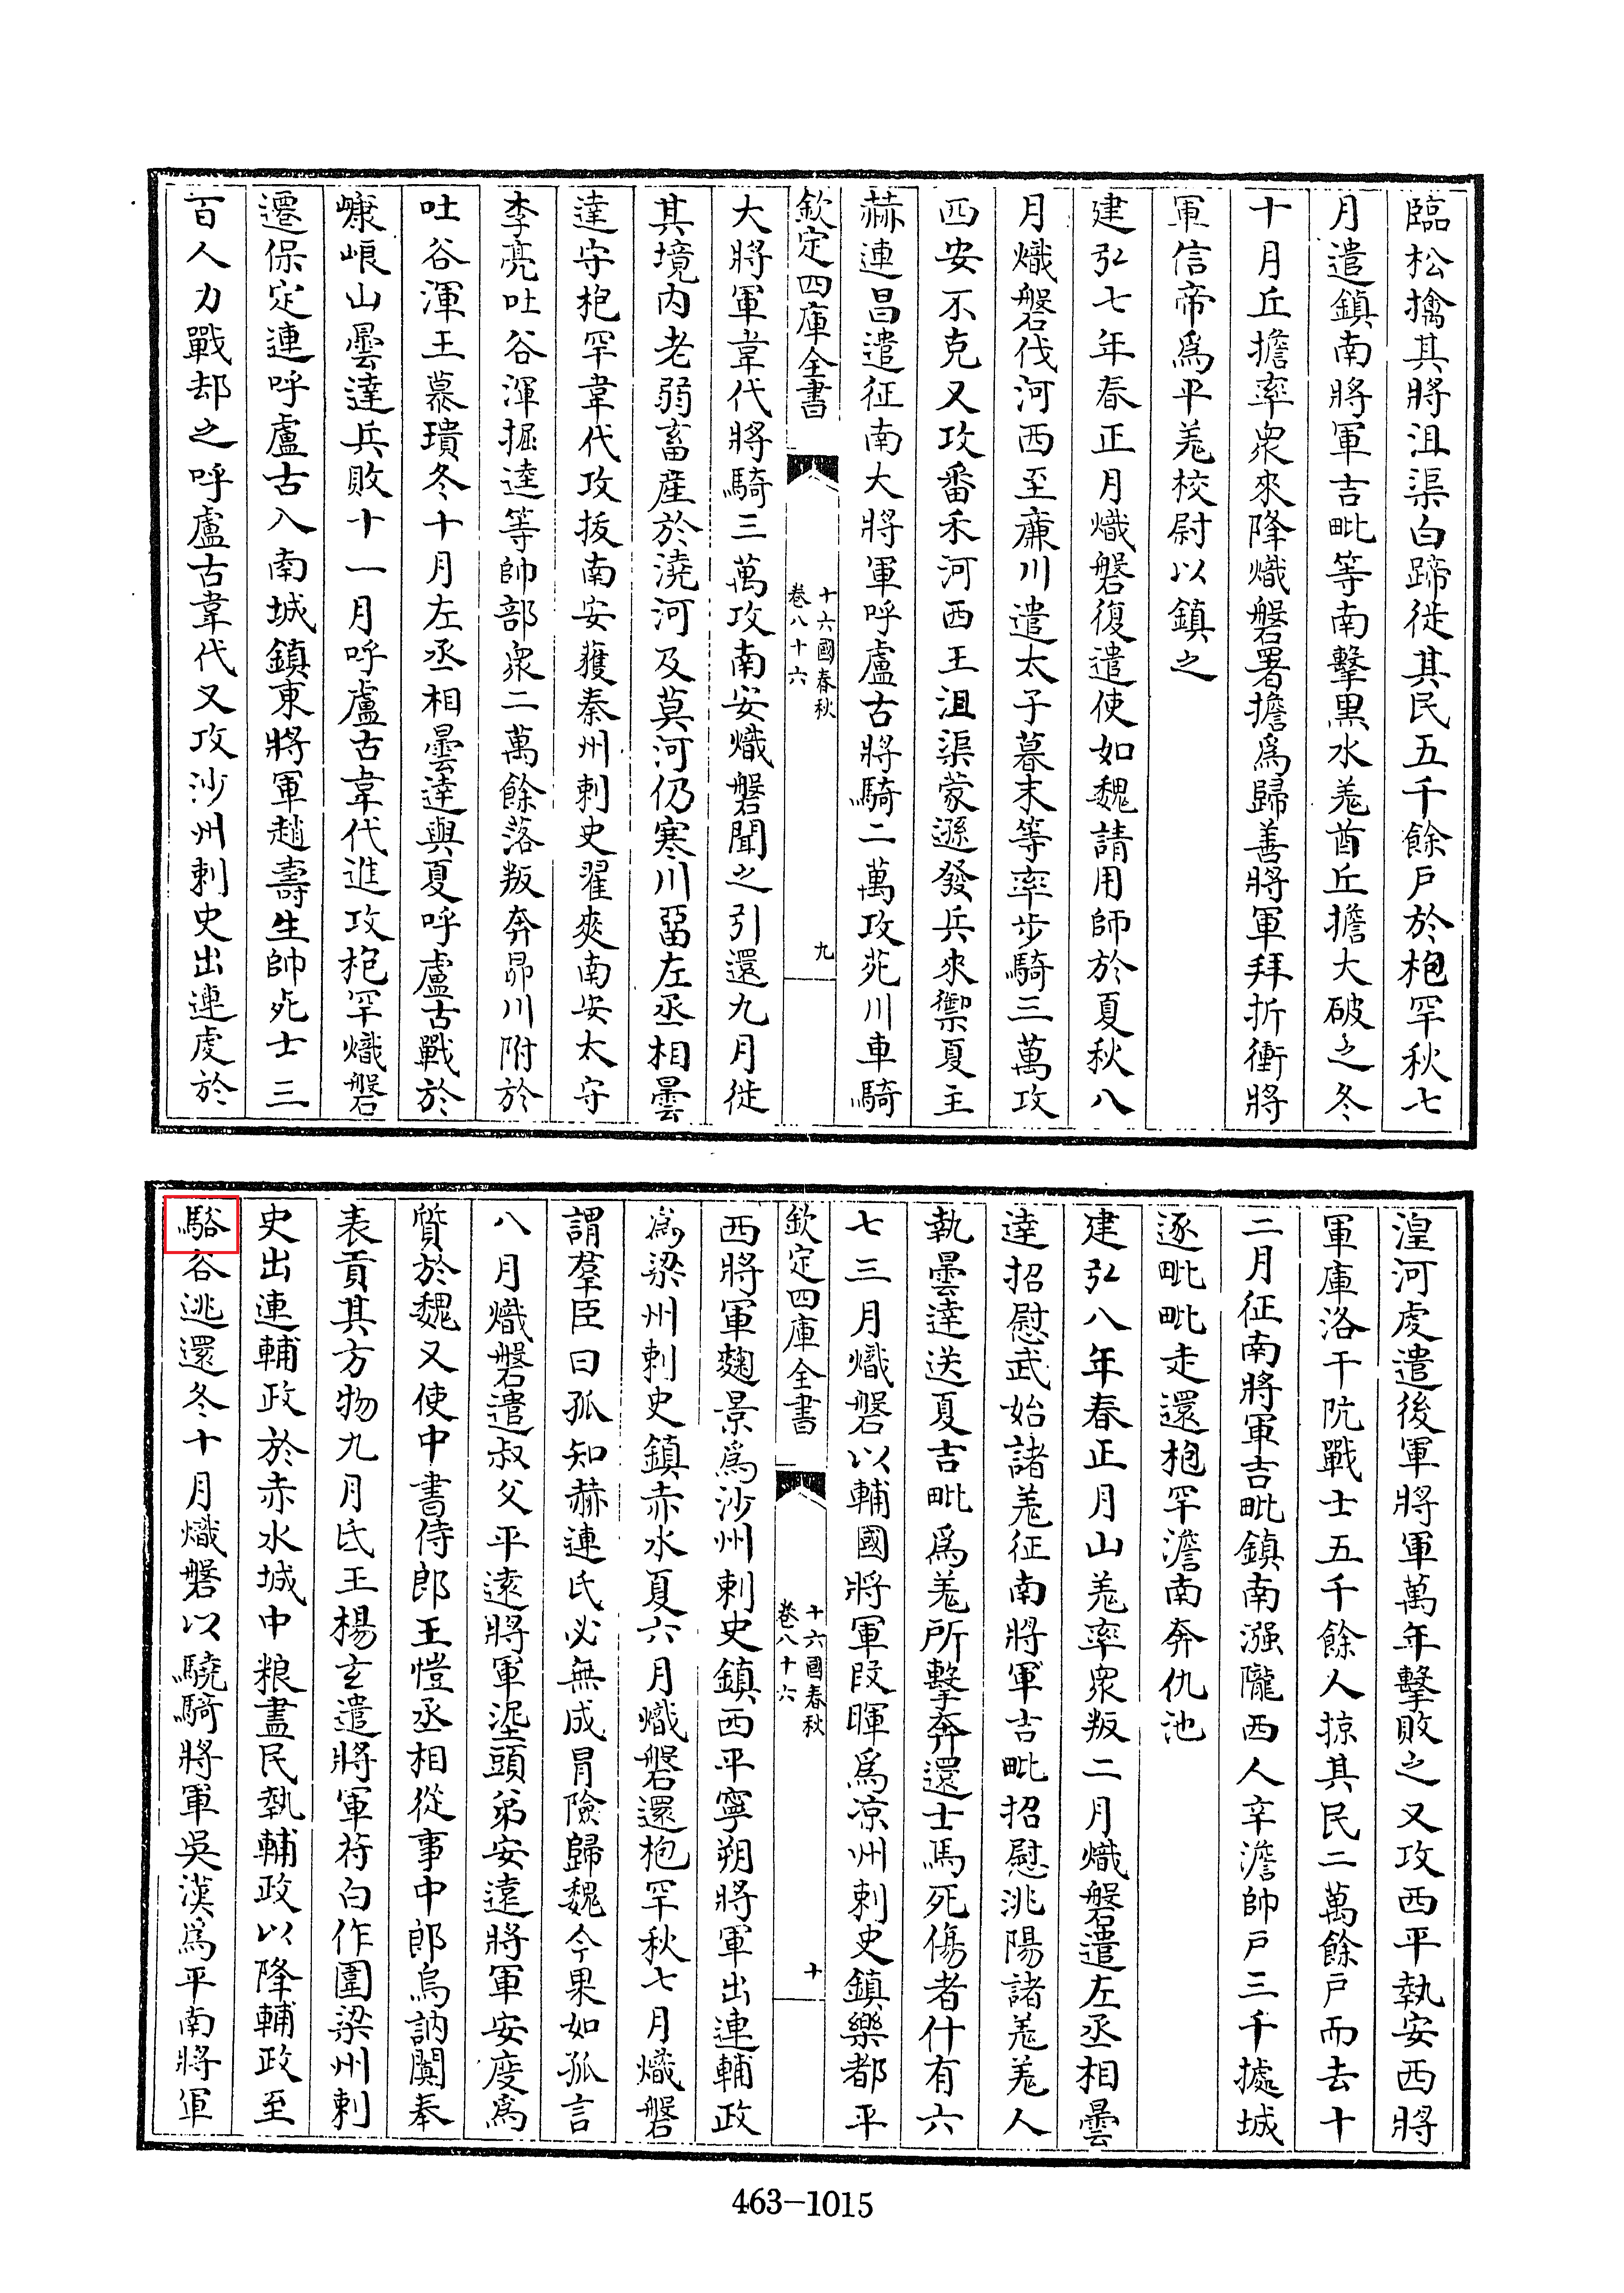 臨松擒其將沮渠白蹄徙其民五千餘户於枹罕秋七
月遣鎮南將軍吉毗等南擊黒水羗酋丘擔大破之冬
十月丘擔率衆來降熾磐署擔爲歸善將軍拜折衝將
軍信帝爲平羗校尉以鎮之
建弘七年春正月熾磐復遣使如魏請用師於夏秋八
月熾磐伐河西至亷川遣太子暮末等率步騎三萬攻
西安不克又攻番禾河西王沮渠蒙遜發兵來禦夏主
赫連昌遣征南大將軍呼盧古將騎二萬攻苑川車騎
欽定四庫全書
十六國春秋
卷八十六
九
大將軍韋代將騎三萬攻南安熾磐聞之引還九月徙
其境内老弱畜産於澆河及莫河仍寒川畱左丞相曇
達守枹罕韋代攻拔南安獲秦州刺史翟爽南安太守
李亮吐谷渾掘逵等帥部衆二萬餘落叛奔昴川附於
吐谷渾王慕璝冬十月左丞相曇逹與夏呼盧古戰於
嵻㟍山曇達兵敗十一月呼盧古韋代進攻枹罕熾磐
遷保定連呼盧古入南城鎮東將軍趙壽生帥死士三
百人力戰却之呼盧古韋代又攻沙州刺史出連虔於
湟河虔遣後軍將軍萬年擊敗之又攻西平執安西將
軍庫洛干阬戰士五千餘人掠其民二萬餘户而去十
二月征南將軍吉毗鎮南漒隴西人辛澹帥户三千據城
逐毗毗走還枹罕澹南奔仇池
建弘八年春正月山羗率衆叛二月熾磐遣左丞相曇
達招慰武始諸羗征南將軍吉毗招慰洮陽諸羗羗人
執曇達送夏吉毗爲羗所擊奔還士馬死傷者什有六
七三月熾磐以輔國將軍段暉爲凉州刺史鎮樂都平
欽定四庫全書
十六國春秋
卷八十六
十
西將軍麴景爲沙州刺史鎮西平寧朔將軍出連輔政
爲梁州刺史鎮赤水夏六月熾磐還枹罕秋七月熾磐
謂羣臣曰孤知赫連氏必無成冒險歸魏今果如孤言
八月熾磐遣叔父平逺將軍渥頭弟安遠將軍安度爲
質於魏又使中書侍郎王愷丞相從事中郎烏訥闐奉
表貢其方物九月氐王楊玄遣將軍苻白作圍梁州刺
史出連輔政於赤水城中粮盡民執輔政以降輔政至
駱谷逃還冬十月熾磐以驍騎將軍吳漢爲平南將軍
463-1015